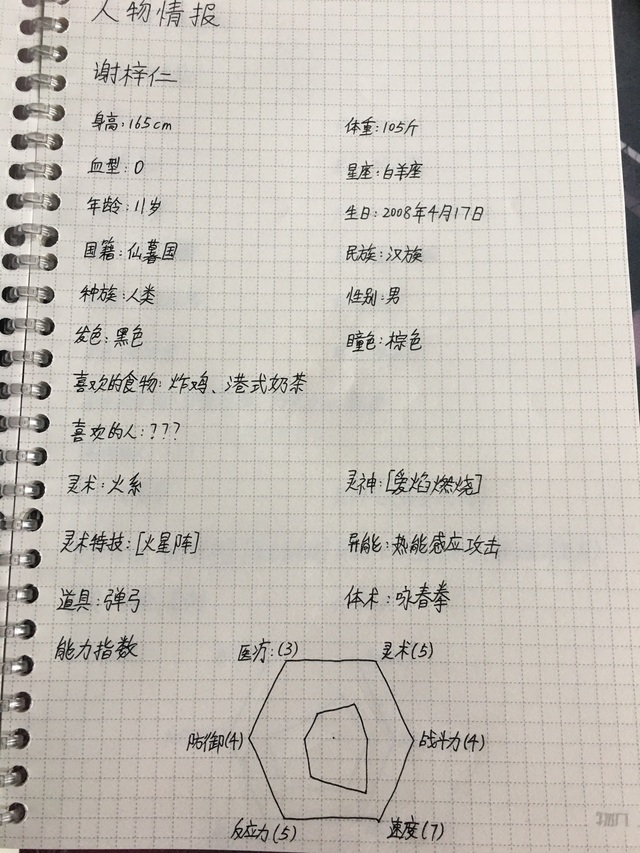 人物情报
谢梓仁
身高:165cm 体重:105斤
血型:O 星座:白羊座
年龄:11岁 生日:2008年4月17日
国籍:仙暮国 民族:汉族
种族:人类 性别:男
发色:黑色 瞳色:棕色
喜欢的食物:炸鸡、港式奶茶
喜欢的人:???
灵术:火系 灵神:[爱焰燃烧]
灵术特技:[火星阵] 异能:热能感应攻击
道具:弹弓 体术:咏春拳
能力指数 医疗:(3) 灵术(5)
防御(4) 战斗力(4)
反应力(5) 速度(7)